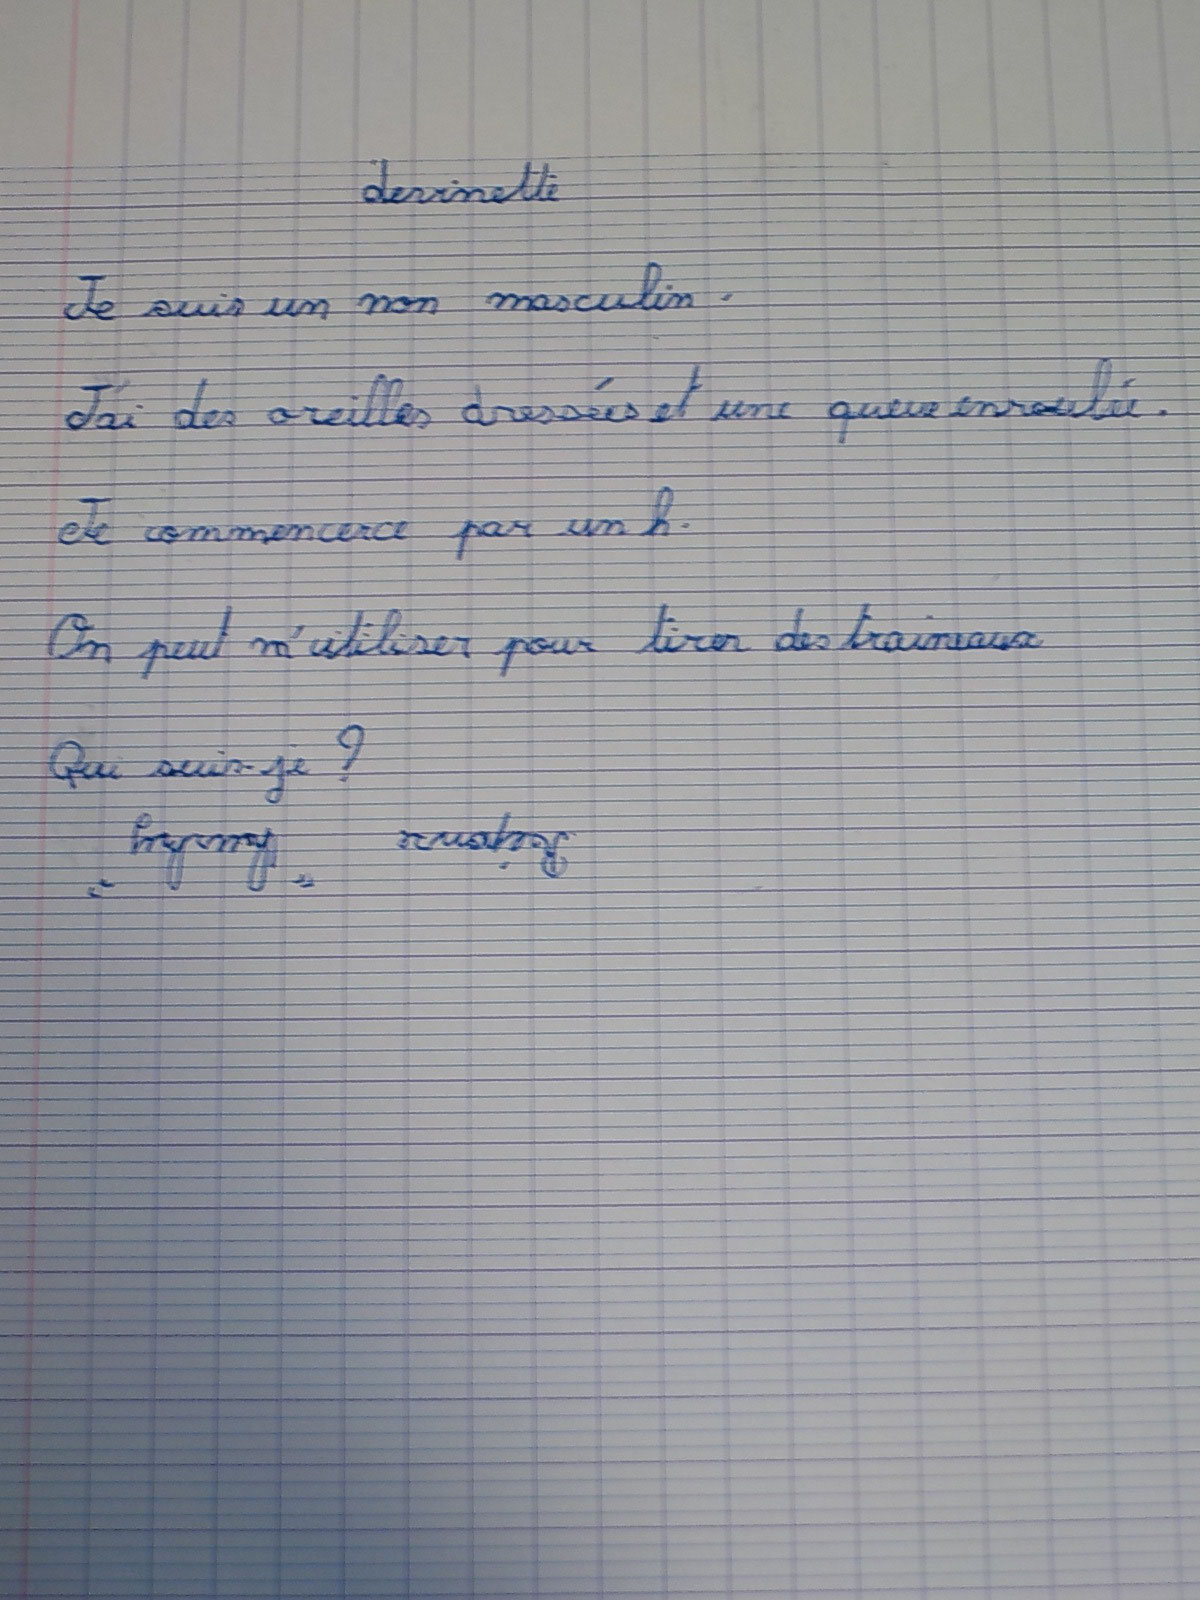 devinette
Je suis un non masculin.
J'ai des oreilles dressées et une queue enroulée.
Je commencerce par un h.
On peut m'utiliser pour tirer des traineaux
Qui suis-je ?
Réponse "